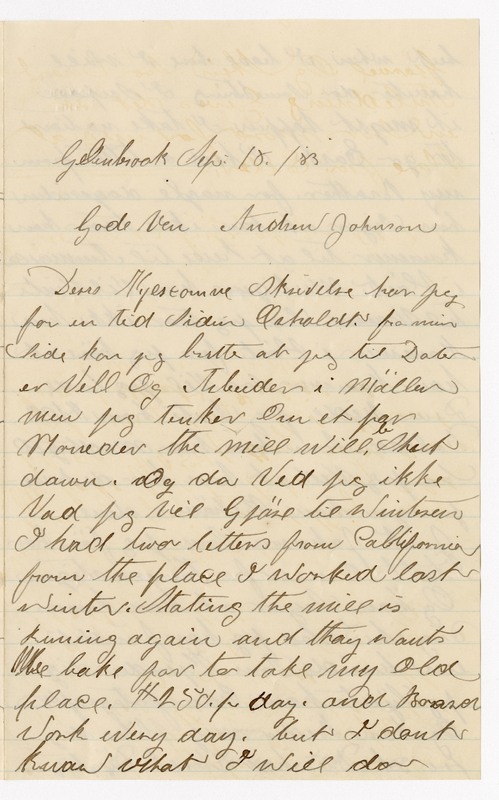 Glenbrook Sep. 18. /83
Gode Ven Andrew Johnson
Deres Kjerkomne Skrivelse har jeg
for en tid Siden Erholdt. fra min
Side kan jeg beette at jeg til Dato
er Vell Og Arbeider i Møllen
men jeg tenker Om et par
Moneder the mill will be Shut
dawn. Og da Ved jeg ikke
Vad jeg vil Gjöre til Winteren
I had two letters from California
from the place I worked last
winter. Stating the mill is
runing again and thay wants
Me bake for to take my Old
place. $2.50 p day. and Board
Work every day. but I dont
know what I will do